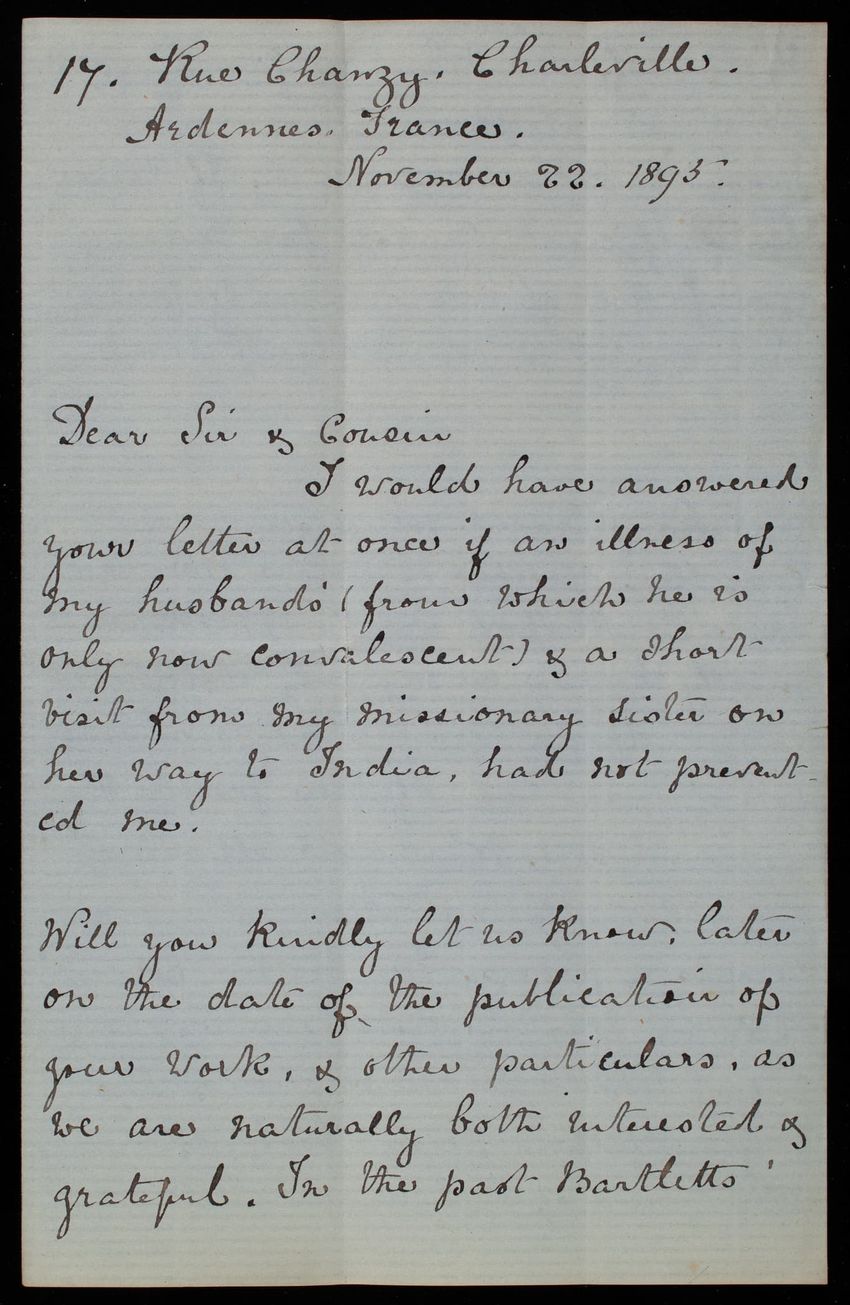 17. Rue Chanzy. Charleville.
Ardennes. France.
November 22. 1895.
Dear Sir & Cousin
I would have answered
your letter at once if an illness of
my husbands' (from which he is
only now convalescent) & a short
visit from my missionary sister on
her way to India, had not prevent-
ed me.
Will you kindly let us know, later
on the date of the publication of
your work, & other particulars, as
we are naturally both interested &
grateful. In the past Bartletts'